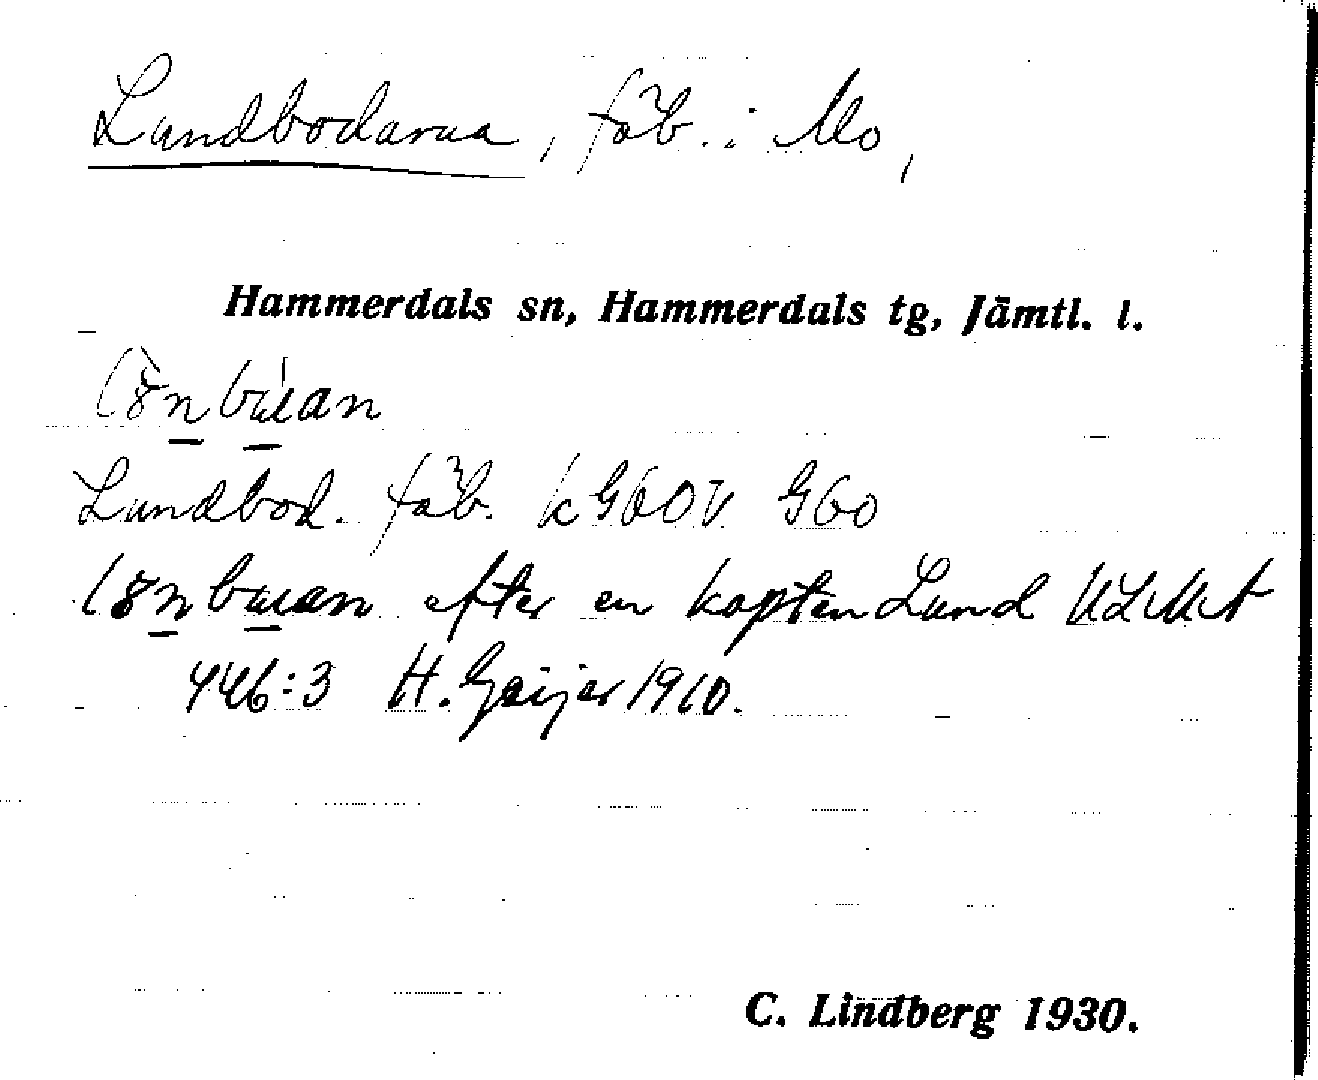 Lundbodarna, fäb. i Mo,
Hammerdals sn, Hammerdals tg, Jämtl. l.
Lundbod. fäb. kG60V G60
efter en kapten Lund ULMA
446:3 H. Geijer 1910.
C. Lindberg 1930.